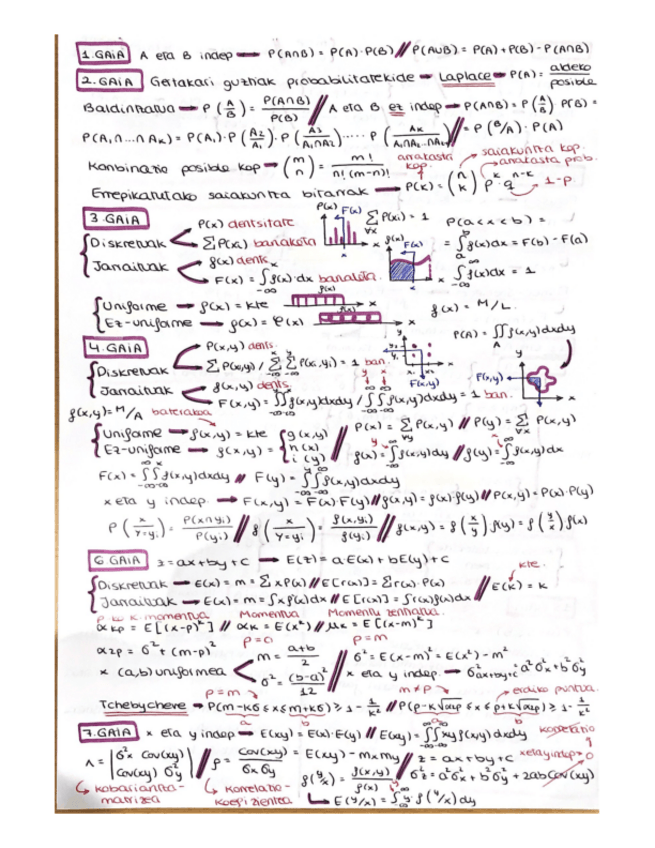 1. GAIA A eta B indep → P(A∩B) = P(A)·P(B) // P(A∪B) = P(A) + P(B) - P(A∩B)
2. GAIA Gertakari guztiak probabilitatekide → Laplace → P(A) = aldeko / posible
Baldintzatua → P(A/B) = P(A∩B) / P(B) // A eta B ez indep → P(A∩B) = P(A/B)·P(B) =
P(A₁∩...∩Aₖ) = P(A₁)·P(A₂/A₁)·P(A₃/A₁∩A₂)·.....·P(Aₖ/A₁∩A₂...∩Aₖ₋₁) // = P(B/A)·P(A)
Konbinazio posible kop → (m n) = m! / n!(m-n)! arrakasta kop. saiakuntza kop. arrakasta prob.
Errepikatutako saiakuntza bitarrak → P(k) = (n k) pᵏ·qⁿ⁻ᵏ → 1-p.
3. GAIA
Diskretuak P(x) dentsitate P(x) F(x) x ∑∀x P(xi) = 1 P(a<x<b) =
∑P(xi) banaketa = ∫ₐᵇ f(x)dx = F(b) - F(a)
Jarraituak f(x) dents. f(x) F(x) x
F(x) = ∫₋∞ˣ f(x)·dx banaketa. ∫₋∞^∞ f(x)dx = 1
Uniforme → f(x) = kte f(x) x f(x) = M/L.
Ez-uniforme → f(x) = φ(x) f(x) x
P(A) = ∬_A f(x,y)dxdy
4. GAIA
Diskretuak P(x,y) dents.
∑P(xi,yi) / ∑∑P(xi,yi) = 1 ban. F(x,y)
Jarraituak f(x,y) dents. F(x,y)
F(x,y) = ∬f(x,y)dxdy / ∬f(x,y)dxdy = 1 ban.
f(x,y) = M/A baterakoa
Uniforme → f(x,y) = kte g(x,y) // P(x) = ∑∀y P(x,y) // P(y) = ∑∀x P(x,y)
Ez-uniforme → f(x,y) = h(x) i(y) // f(x) = ∫₋∞^∞ f(x,y)dy // f(y) = ∫₋∞^∞ f(x,y)dx
F(x) = ∫∫f(x,y)dxdy // F(y) = ∫∫f(x,y)dxdy
x eta y indep. → F(x,y) = F(x)·F(y) // f(x,y) = f(x)·f(y) // P(x,y) = P(x)·P(y)
P(x/Y=yi) = P(x∩yi) / P(yi) // f(x/Y=yi) = f(x,yi) / f(yi) // f(x,y) = f(x/y) f(y) = f(y/x) f(x)
6. GAIA z = ax+by+c → E(z) = a·E(x) + bE(y) + c kte.
Diskretuak → E(x) = m = ∑xP(x) // E[r(x)] = ∑r(x)·P(x) // E(k) = k
Jarraituak → E(x) = m = ∫xf(x)dx // E[r(x)] = ∫r(x)f(x)dx
Momentua Momentu zentratua.
αkp = E[(x-p)ᵏ] // αk = E(xᵏ) // μk = E[(x-m)ᵏ]
p=0 p=m
α2p = σ² + (m-p)²
x (a,b) uniformea m = a+b / 2 // σ² = E(x-m)² = E(x²) - m²
σ² = (b-a)² / 12 // x eta y indep. → σ²ax+by+c = a²σ²x + b²σ²y
p=m m≠p erdiko puntua.
Tchebycheve → P(m-kσ ≤ x ≤ m+kσ) ≥ 1 - 1/k² // P(p-k√α2p ≤ x ≤ p+k√α2p) ≥ 1 - 1/k²
a b a b
7. GAIA x eta y indep → E(xy) = E(x)·E(y) // E(xy) = ∫∫xy f(x,y)dxdy korrelazio
Λ = |σ²x Cov(xy) Cov(xy) σ²y| // ρ = Cov(xy) / σxσy = E(xy) - mxmy // z = ax+by+c x eta y indep → 0
f(y/x) = f(x,y) / f(x) // σ²z = a²σ²x + b²σ²y + 2abCov(xy)
kobariantza-matrizea korrelazio-koefizientea E(y/x) = ∫y·f(y/x)dy